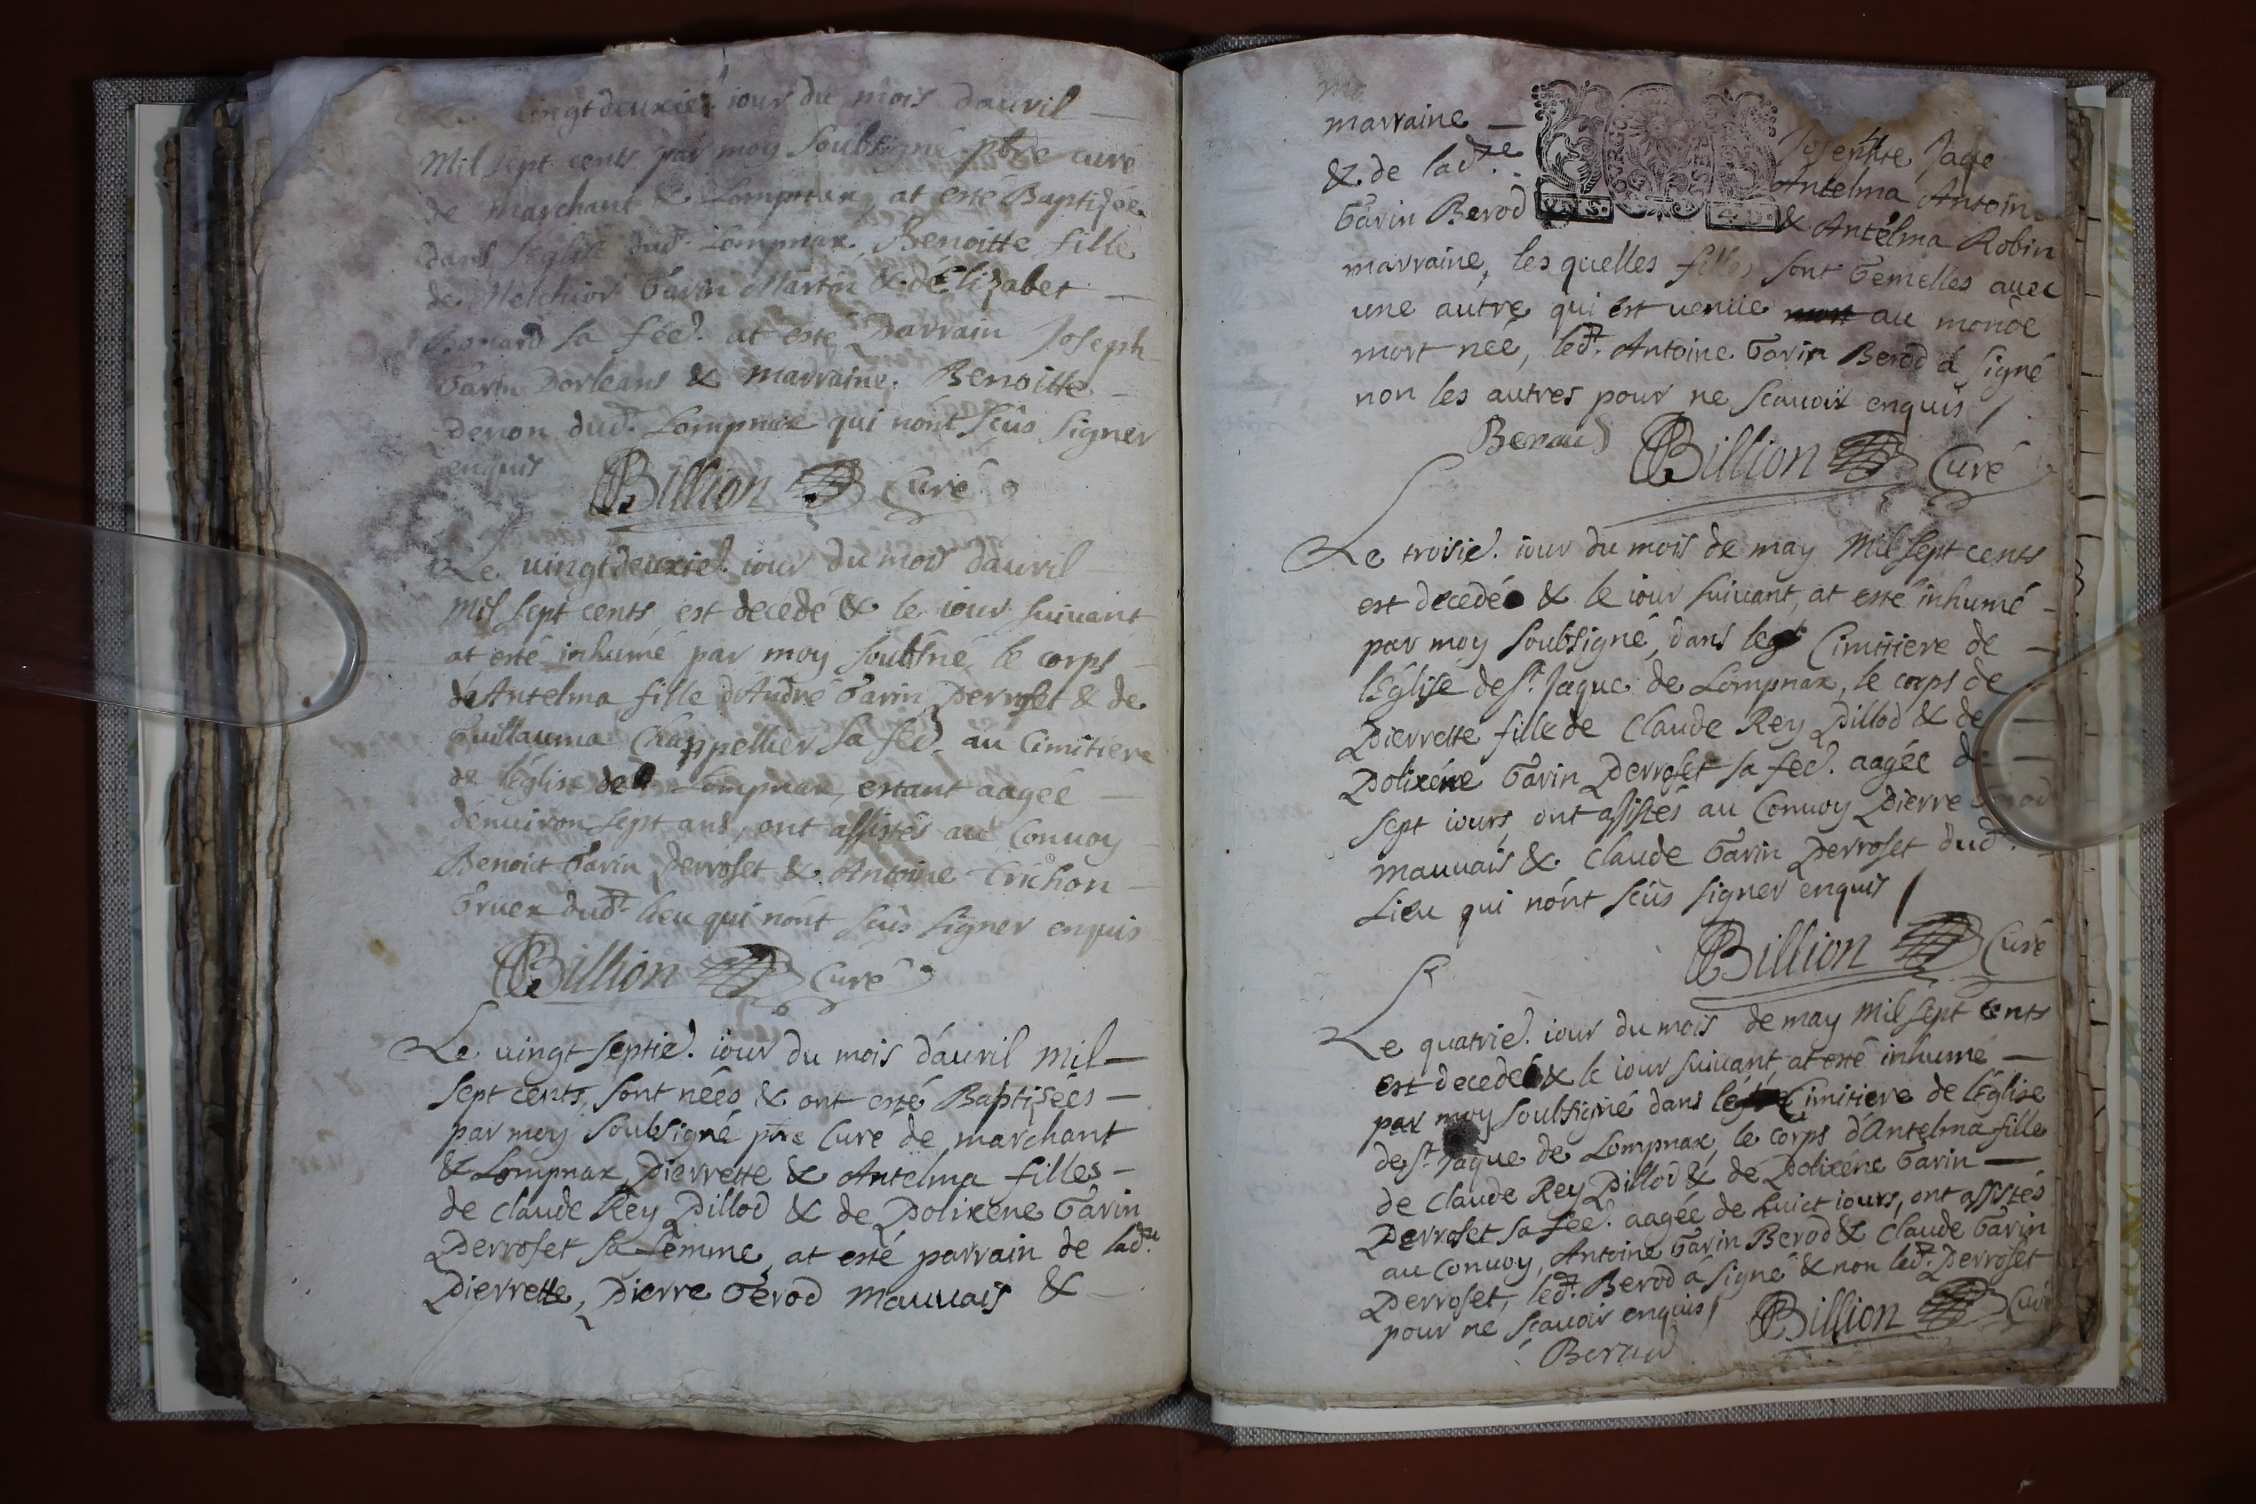 vingtdeuxie. iour du mois dauril
Mil sept cents par moy soubsigné pbre cure
de marchant & Lompnax, at esté Baptisée
dans l'église dud. Lompnax, Benoitte fille
de Melchior Garin Martin & d'Elizabet
sa fée. at esté Parrain Joseph
Garin Dorleans & marraine. Benoitte
dud. Lompnax qui n'ont sçûs signer
enquis
Billion Curé
Le uingtdeuxie. iour du mois dauril
Mil sept cents est decedé & le iour suiuant
at esté inhumé par moy soubsné le corps
de Antelma fille d'Andre Garin Perroset & de
Guillauma Chappellier sa fée. au Cimitiere
de l'église de Lompnax, estant aagée
d'enuiron sept ans, ont assistés au Conuoy
Benoict Garin Perroset & Antoine Crichon
Gruex dud.t lieu qui n'ont sçûs signer enquis
Billion Curé
Le uingt septie. iour du mois d'auril Mil
sept cents, sont néés & ont esté Baptisées
par moy soubsigné ptre Cure de marchant
& Lompnax, Pierrette & Antelma filles
de Claude Rey Pillod & de Polixene Garin
Perroset sa femme, at esté parrain de lad.te
Pierrette, Pierre Gerod Mauuais &
marraine
& de lad.te
Garin Berod
Josephte Jaque
Antelma Antoin
& Antelma Robin
marraine, lesquelles filles sont Gemelles auec
une autre qui est uenue mort au monde
mort née, led.t Antoine Garin Berod a signé
non les autres pour ne scauoir enquis
Beraud Billion Curé
Le troisie. iour du mois de may Mil sept cents
est decedé & le iour suiuant, at esté inhumé
par moy soubsigné, dans le Cimitiere de
l'Église de St. Jaque de Lompnax, le corps de
Pierrette fille de Claude Rey Pillod & de
Polixéne Garin Perroset sa fée. aagée de
sept iours, ont assistés au Conuoy Pierre Gerod
Mauuais & Claude Garin Perroset dud.t
Lieu qui n'ont sçûs signer enquis
Billion Curé
Le quatrie. iour du mois de may Mil sept cents
est decedé & le iour suiuant, at esté inhumé
par moy soubsigné dans le Cimitiere de l'Église
de St. Jaque de Lompnax, le corps d'Antelma fille
de Claude Rey Pillod & de Polixéne Garin
Perroset sa fée. aagée de huict iours, ont assistés
au Conuoy, Antoine Garin Berod & Claude Garin
Perroset, led.t Berod a signé & non led.t Perroset
pour ne scauoir enquis Billion Curé
Beraud